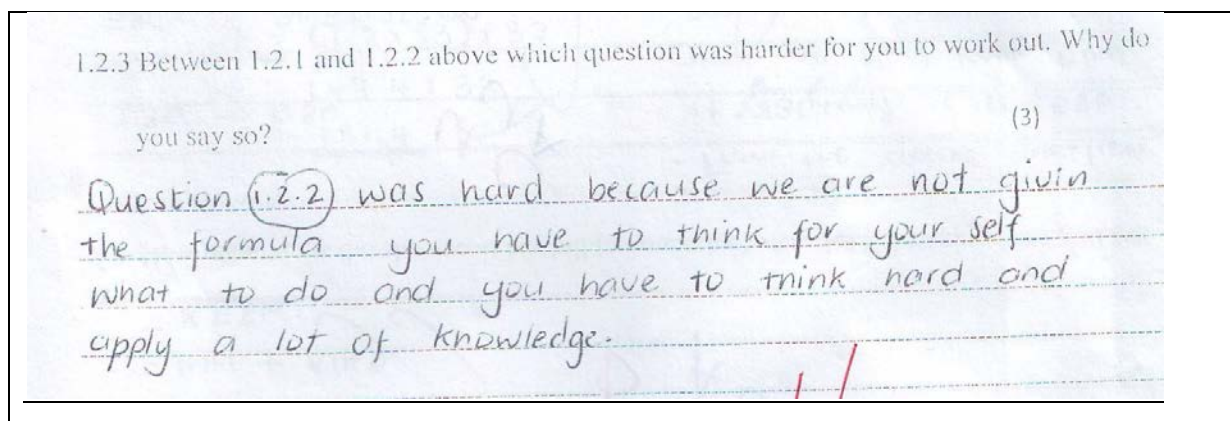 1.2.3 Between 1.2.1 and 1.2.2 above which question was harder for you to work out. Why do
you say so? (3)
Question 1.2.2 was hard because we are not givin
the formula you have to think for your self
what to do and you have to think hard and
apply a lot of knowledge.